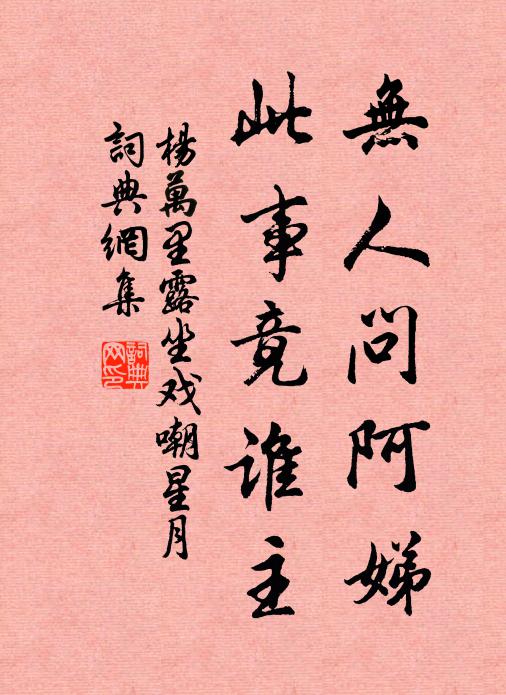 無人問阿娣
此事竟誰主
楊萬里露坐戏嘲星月
詞典網集
詞典
网印